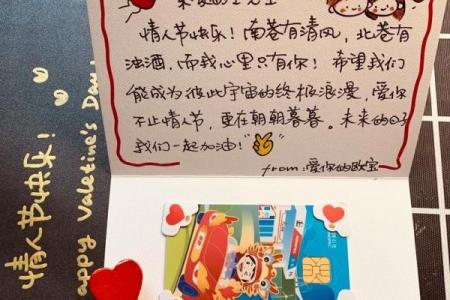 情人节快乐！南苍有清风，北苍有
浊酒，而我心里只有你！希望我们
能成为彼此宇宙的终极浪漫，爱你
不止情人节，更在朝朝暮暮。未来的日子
我们一起加油！
from：爱你的欧宝
情人节快乐！
Happy Valentine's Day!